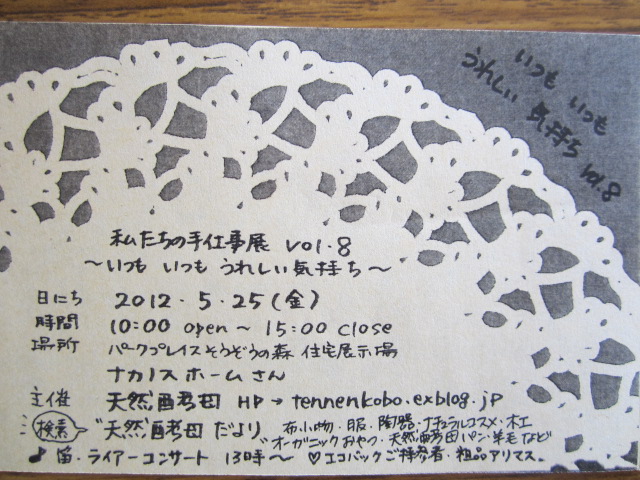 いつも いつも
うれしい 気持ち vol.8
私たちの手仕事展 vol.8
〜いつも いつも うれしい気持ち〜
日にち 2012.5.25(金)
時間 10:00 open〜15:00 close
場所 パークプレイスそうぞうの森 住宅展示場
ナカノスホームさん
主催 天然酵母 HP→tennenkobo.exblog.jp
検索 "天然酵母だより" 布小物・服・陶器・ナチュラルコスメ・木工
オーガニックおやつ・天然酵母パン・羊毛など
♪笛・ライアーコンサート 13時〜 ♡エコバックご持参者・粗品アリマス